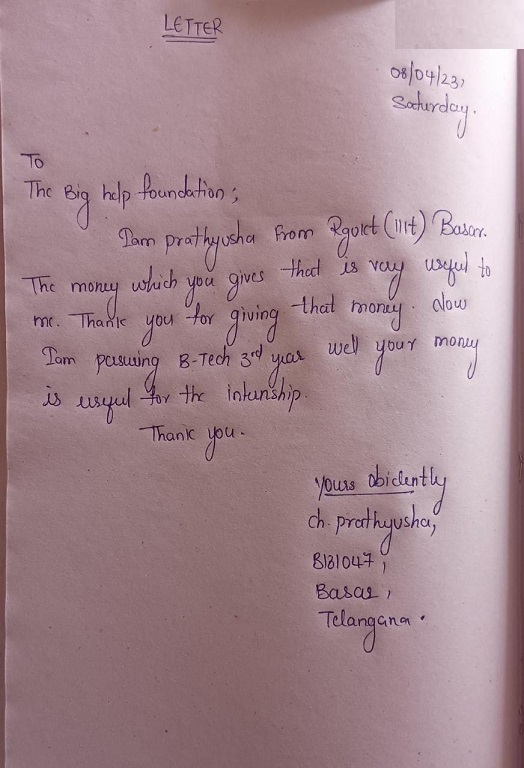 LETTER
08/04/23,
Saturday.
To
The Big help foundation;
Iam prathyusha From Rgukt (IIIt) Basar.
The money which you gives that is very useful to
me. Thank you for giving that money. Now
Iam pasuing B-Tech 3rd year well your money
is useful for the intunship.
Thank you.
Yours obidently
ch. prathyusha,
B181047,
Basar,
Telangana.